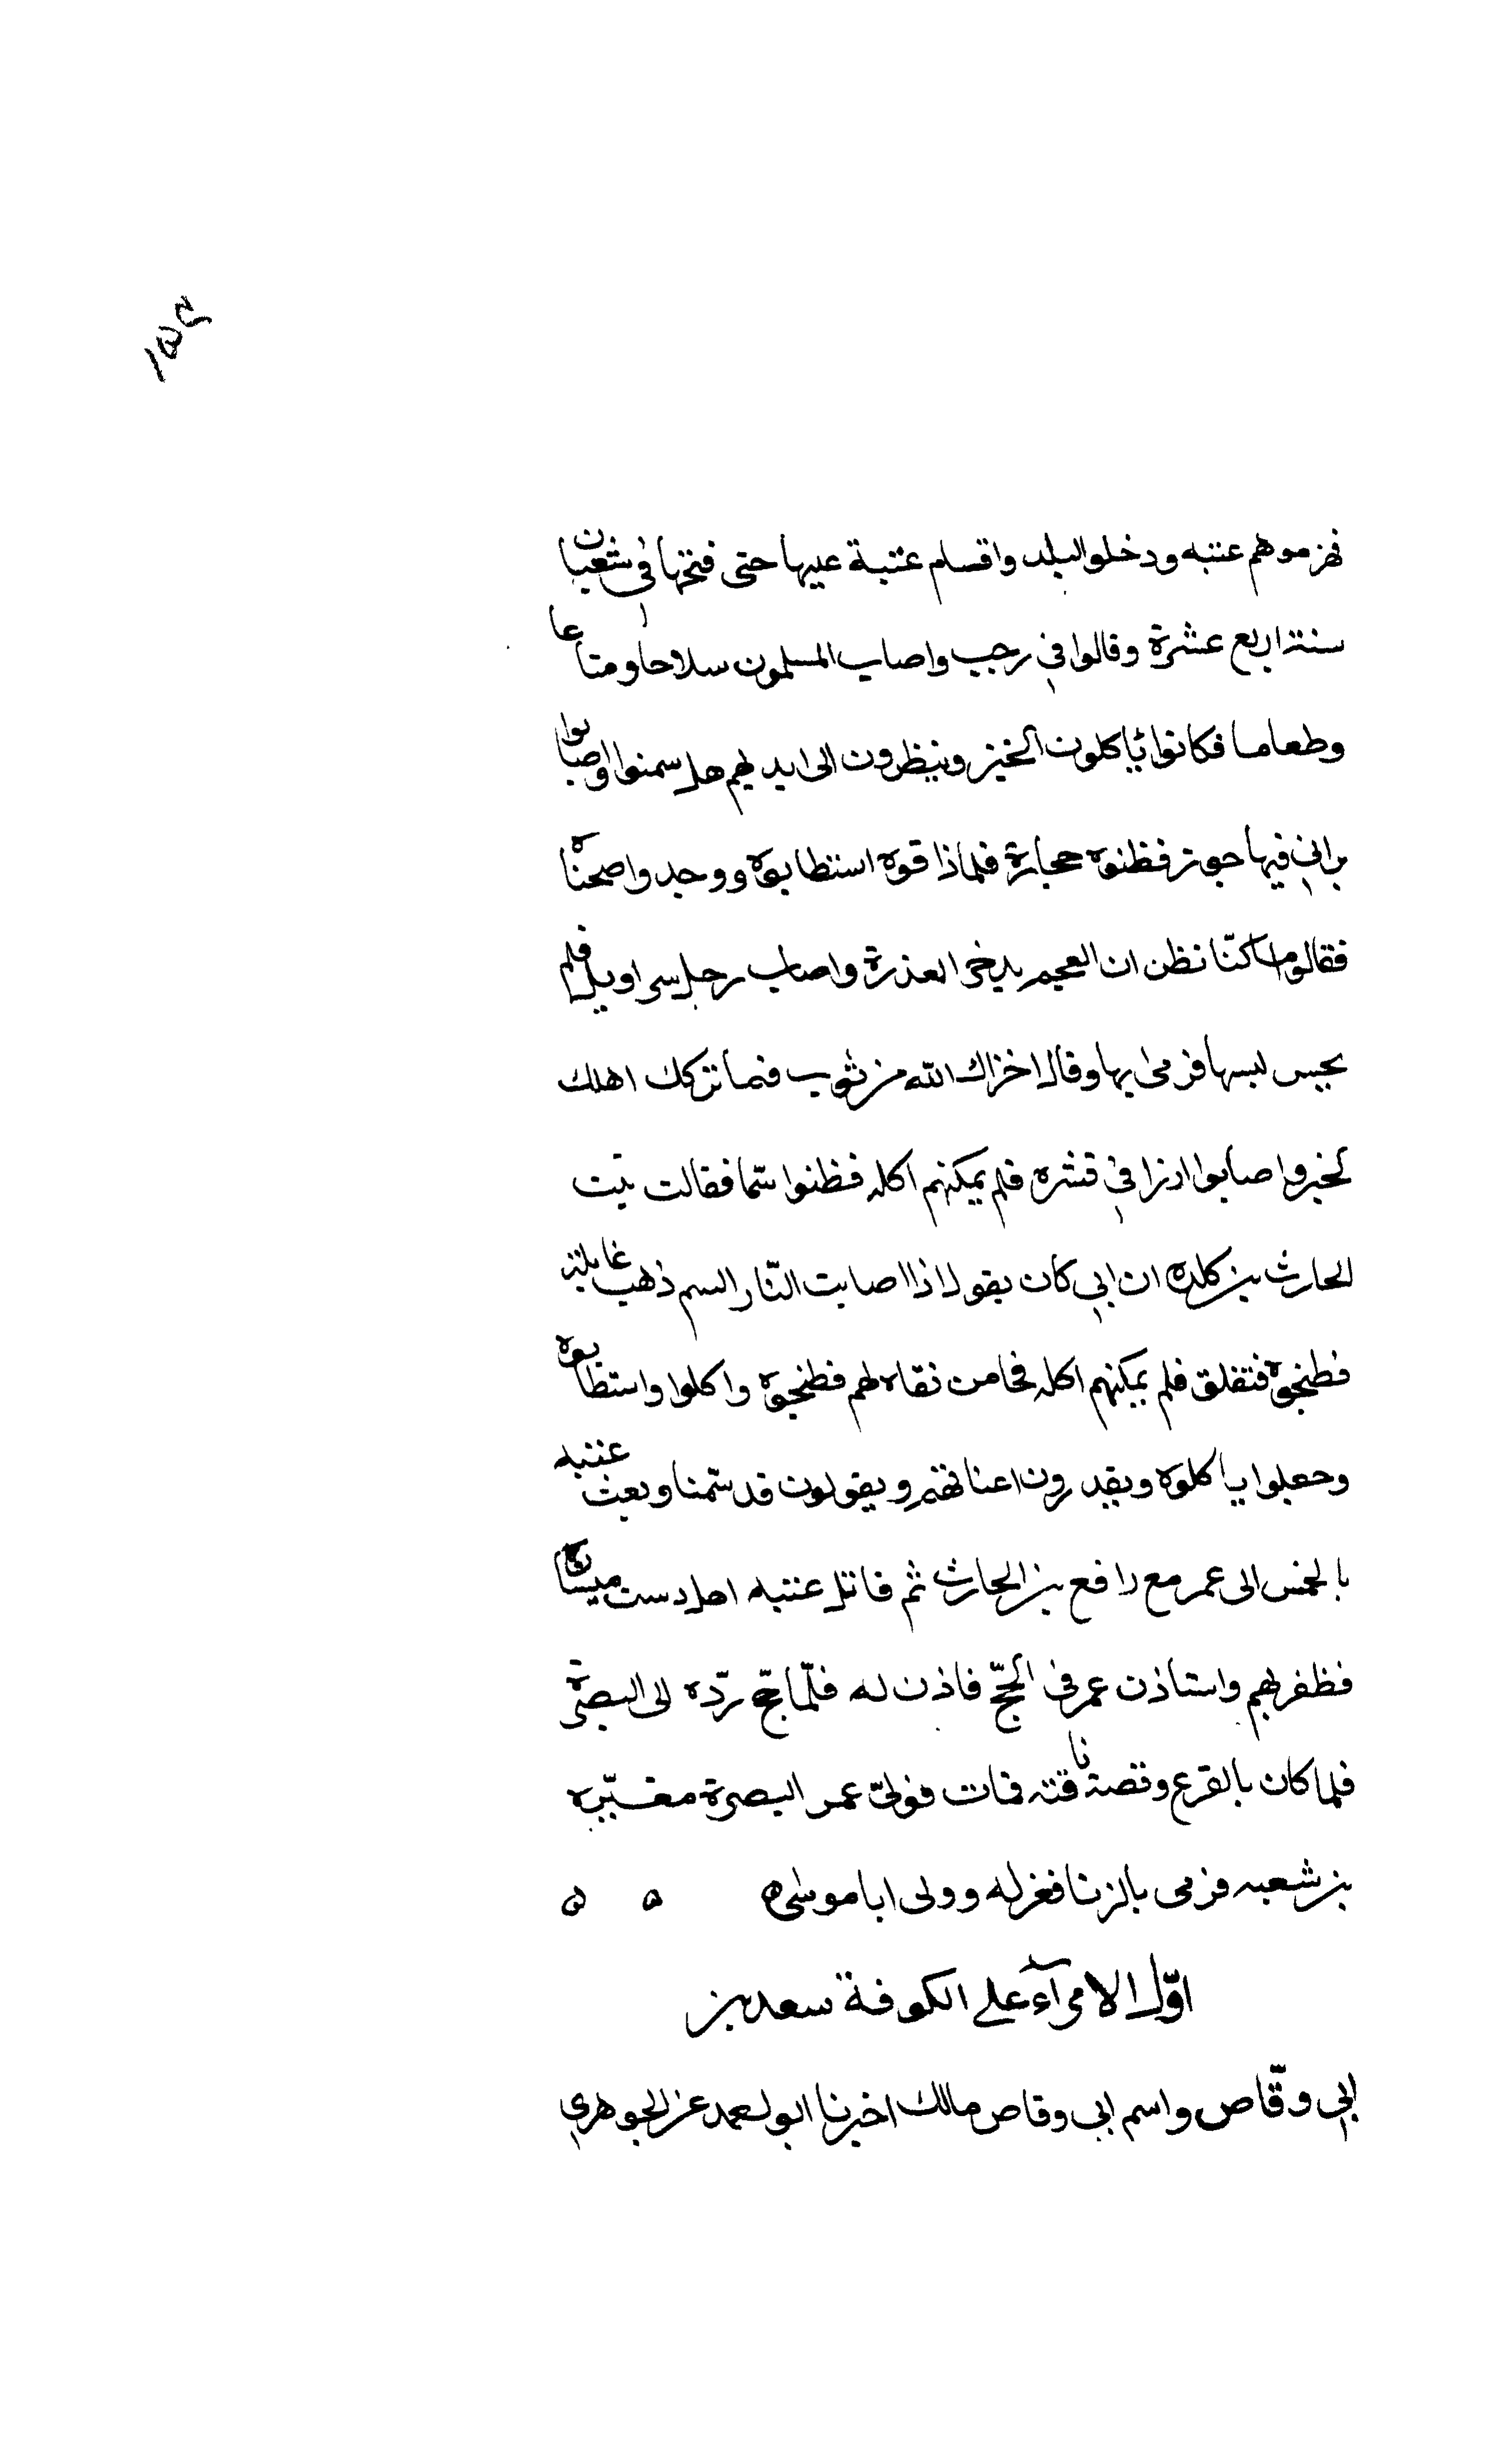 ١٥٤
فهزموهم عتبه ودخلوا البلد واقسام عتبة عليها حتى فتحها في شعبان
سنة اربع عشرة وقالوا في رجب واصاب المسلمون سلاحا ومتاعا
وطعاما فكانوا ياكلون الخبز وينظرون الى ابديهم هل سمنوا واصابوا
براني فيها جوز فظنوه حجارة فلما ذاقوه استطابوه ووجدوا صحناة
فقالوا ما كنّا نظن ان العجم يدخر العذرة واصاب رجل سراويل فلم
يحبس لبسها فرمى بها وقال اخزاك الله من ثوب فما تركك اهلك
لخير واصابوا ارزا في قشره فلم يمكنهم اكله فظنوا سمّا فقالت بنت
الحارث بن كلده ان ابي كان يقول اذا اصابت النّار السم ذهب غايلته
فطبخوه فتفلق فلم يمكنهم اكله فجا من نقاه لهم فطبخوه واكلوا واستطابوه
وجعلوا ياكلوه ويقدرون اعناقهم ويقولون قد سمّنا وبعث عتبه
بالخمس الى عمر مع رافع بن الحارث ثم قاتل عتبه اهل دست ميسان
فظفر بهم واستاذن عمر في الحجّ فاذن له فلمّا حجّ ردّه الى البصرة
فلما كان بالفرع وقصته ناقته فمات فولّى عمر البصرة مغيّره
بن شعبه فرمى بالزنا فعزله وولى ابا موسى ه ه ه
اوّل الامرآء على الكوفة سعد بن
ابي وقّاص واسم ابي وقاص مالك اخبرنا ابو احمد عن الجوهري